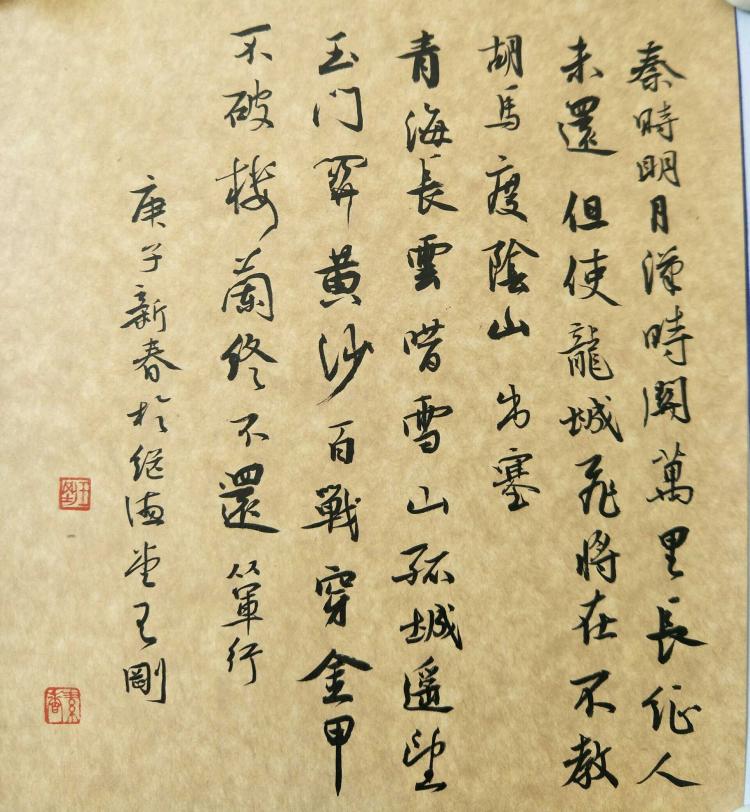 秦時明月漢時関萬里長征人
未還但使龍城飛將在不教
胡馬度陰山出塞
青海長雲暗雪山孤城遥望
玉门関黄沙百戰穿金甲
不破楼蘭終不還從軍行
庚子新春於继德堂王剛